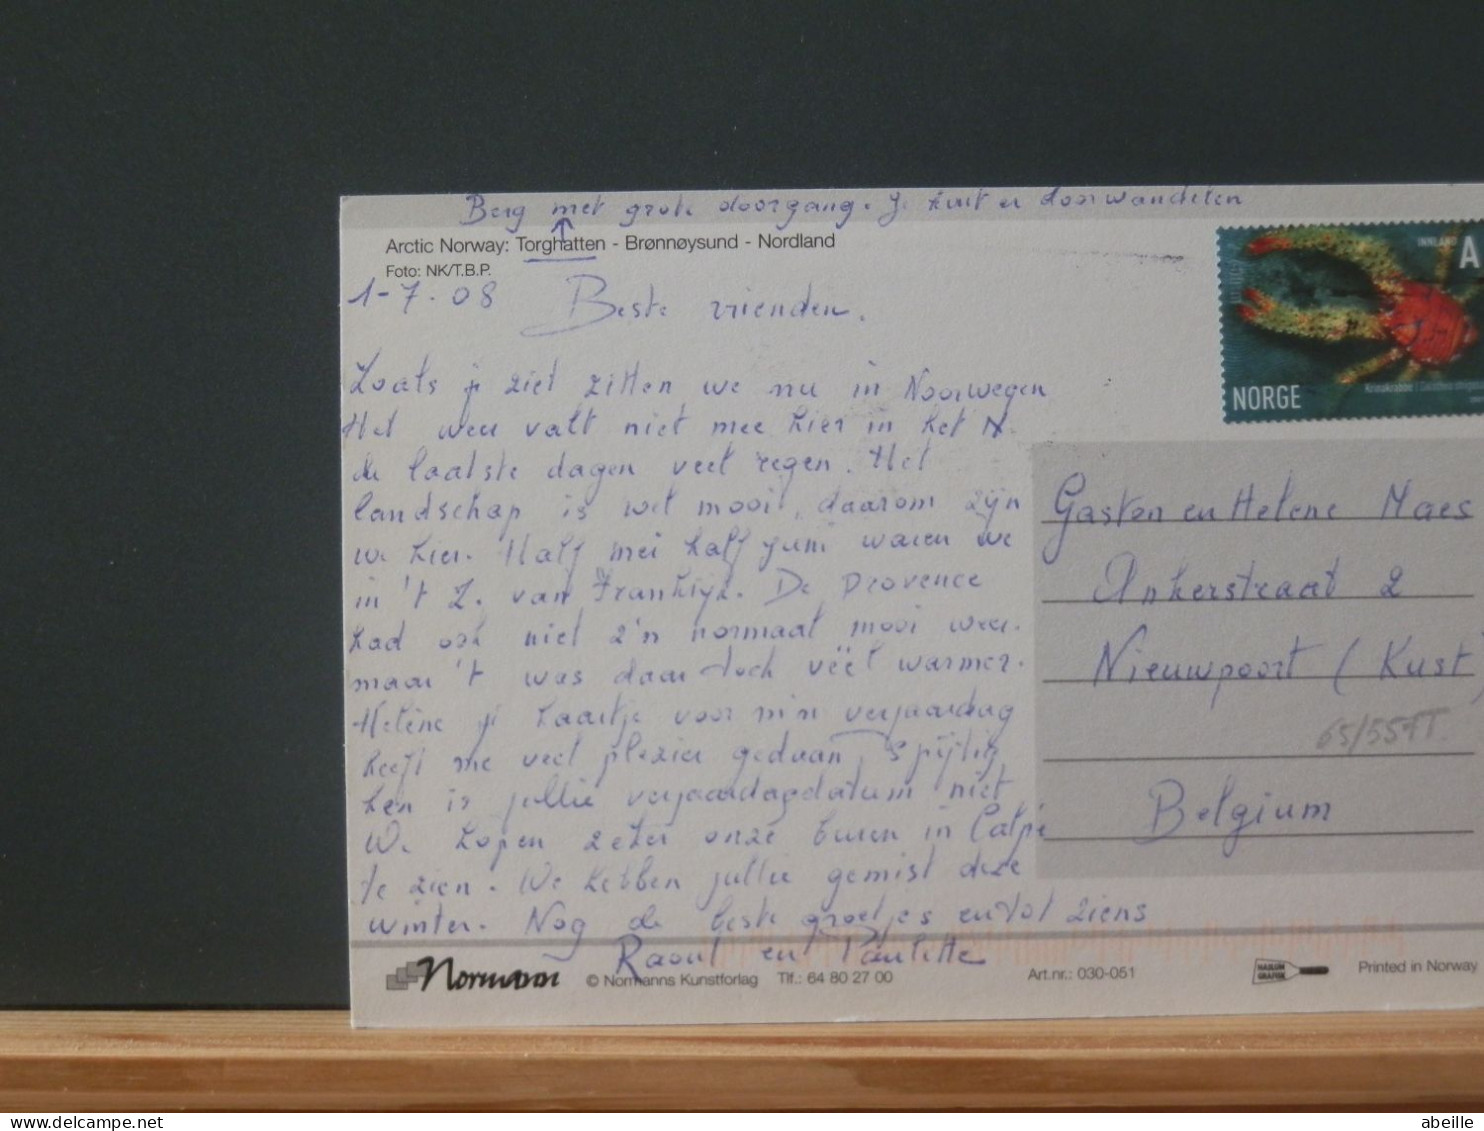 Berg met grote doorgang. Je kunt er doorwandelen
Arctic Norway: Torghatten - Brønnøysund - Nordland
Foto: NK/T.B.P.
1-7-08 Beste vrienden.
Zoals je ziet zitten we nu in Noorwegen
Het weer valt niet mee hier in het N.
de laatste dagen veel regen. Het
landschap is wel mooi, daarom zijn
we hier. Half mei half juni waren we
in 't Z. van Frankrijk. De Provence
had ook niet z'n normaal mooi weer.
maar 't was daar toch véél warmer.
Helène je kaartje voor m'n verjaardag
heeft me veel plezier gedaan, spijtig
ken ik jullie verjaardagsdatum niet
We hopen zeker onze buren in Calpe
te zien. We hebben jullie gemist deze
winter. Nog de beste groetjes en tot ziens
Raoul en Paulette
INNLAND A
NORGE
Gaston en Helene Maes
Ankerstraat 2
Nieuwpoort (Kust)
65/55 TT
Belgium
Normann © Normanns Kunstforlag Tlf.: 64 80 27 00 Art.nr.: 030-051 Printed in Norway
abeille